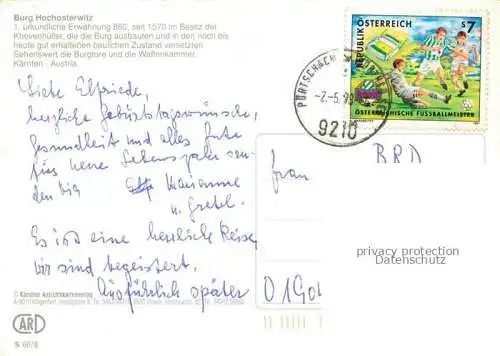 Burg Hochosterwitz
1. urkundliche Erwähnung 860, seit 1570 im Besitz der
Khevenhüller, die die Burg ausbauten und in den noch bis
heute gut erhaltenen baulichen Zustand versetzten
Sehenswert die Burgtore und die Waffenkammer.
Kärnten - Austria
Liebe Elfriede,
herzliche Geburtstagswünsche,
Gesundheit und alles Gute
fürs neue Lebensjahr sen-
den Dir Marianne
u. Gretel.
Es ist eine herrliche Reise,
wir sind begeistert.
Ausführlich später
© Kärntner Ansichtskartenverlag
CARD
S 6678
REPUBLIK ÖSTERREICH S7
ÖSTERREICHISCHE FUSSBALLMEISTER
PÖRTSCHACH AM WÖRTHER SEE
9210
BRD
Frau
privacy protection
Datenschutz